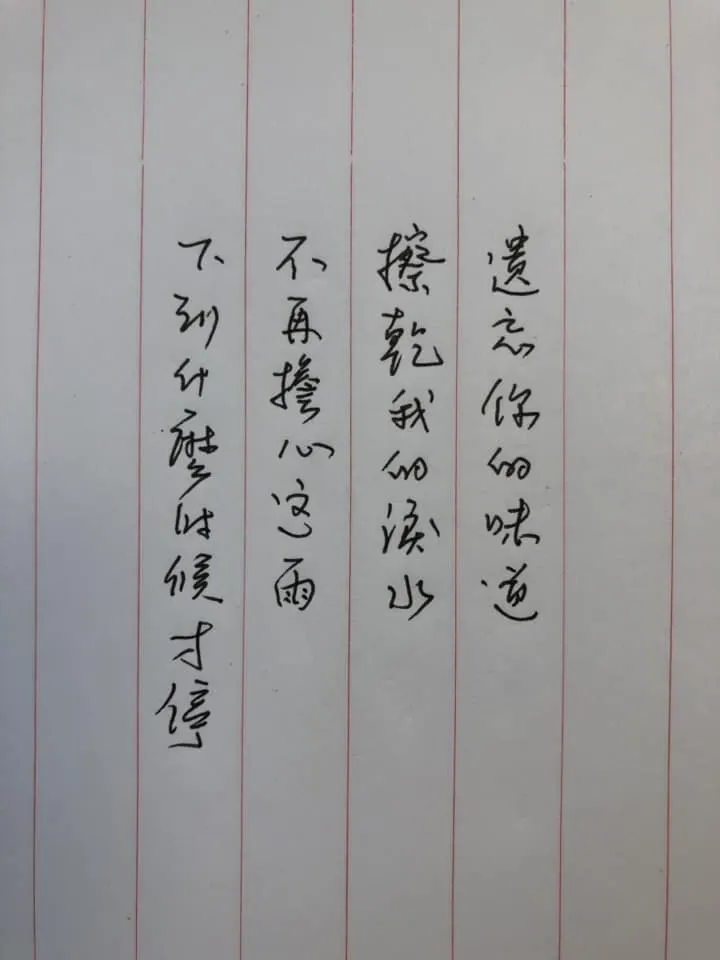 遺忘你的味道
擦乾我的淚水
不再擔心这雨
下到什麼时候才停